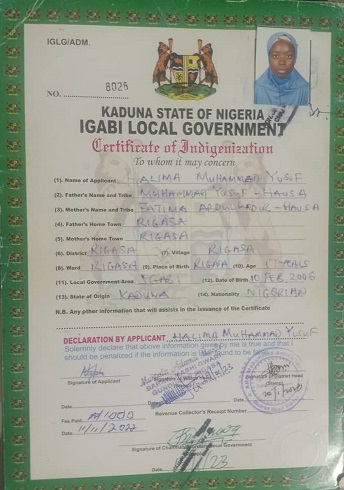 IGLG/ADM.
NO. 8025
KADUNA STATE OF NIGERIA
IGABI LOCAL GOVERNMENT
Certificate of Indigenization
To whom it may concern
(1). Name of Applicant ALIMA MUHAMMAD YUSUF
(2). Father's Name and Tribe MUHAMMAD YUSUF - HAUSA
(3). Mother's Name and Tribe FATIMA ABDULKADIR - HAUSA
(4). Father's Home Town RIGASA
(5). Mother's Home Town RIGASA
(6). District RIGASA (7). Village RIGASA
(8). Ward RIGASA (9). Place of Birth RIGASA (10). Age 17 YEARS
(11). Local Government Area IGABI (12). Date of Birth 10 FEB 2006
(13). State of Origin KADUNA (14). Nationality NIGERIAN
N.B. Any other information that will assists in the issuance of the Certificate
DECLARATION BY APPLICANT I HALIMA MUHAMMAD YUSUF
Solemnly declare that above information given by me is true and that I
should be penalized if the information is found to be
Signature of Applicant
Signature of District Head
(Stamp)
Date
Fee Paid ₦1000 Revenue Collector's Receipt Number
Date 11/11/2022 Date
Signature of
Date /23